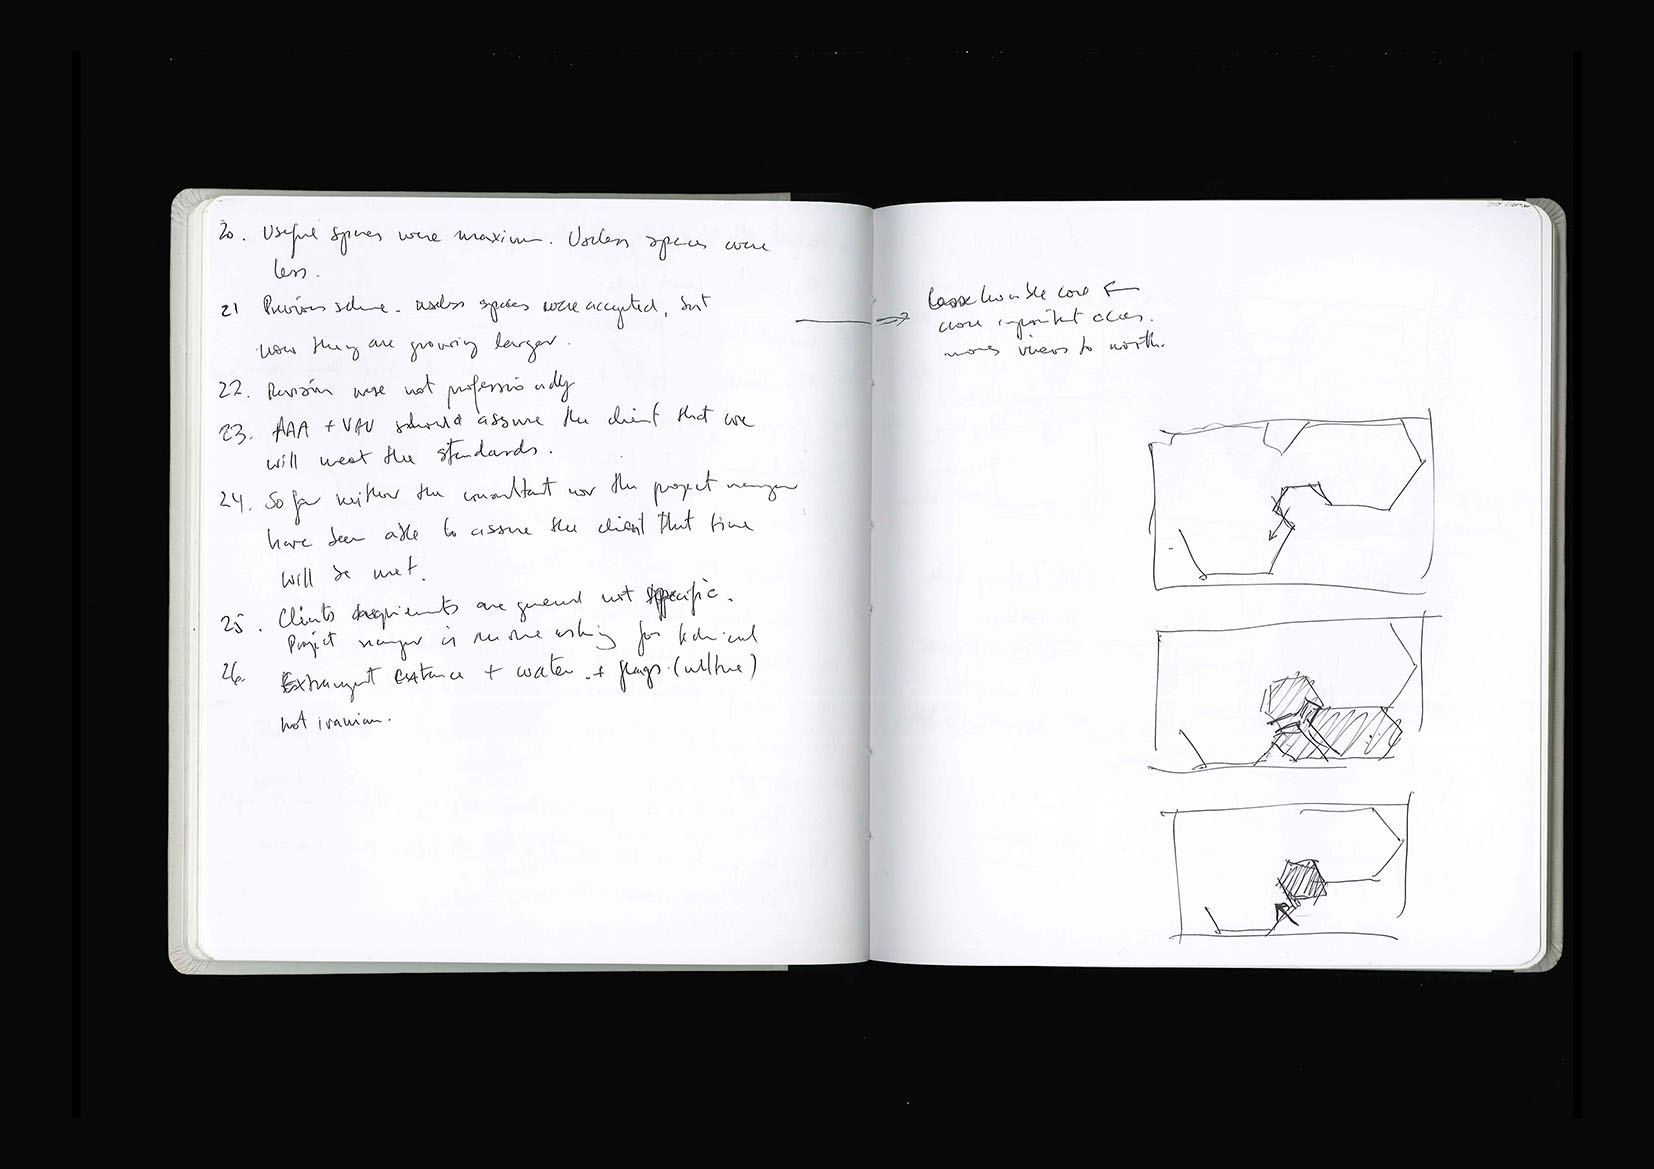 20. Useful spaces were maximum. Useless spaces were
less.
21 Previous scheme - useless spaces were accepted, but
now they are growing larger.
22. Revision were not professionally
23. AAA + VAV should assure the client that we
will meet the standards.
24. So far neither the consultant nor the project manager
have been able to assure the client that time
will be met.
25. Clients requirements are general not specific.
Project manager is asking for technical
26. Extravagant entrance + water + flags (culture)
not iranian.
core
more important
views to north.